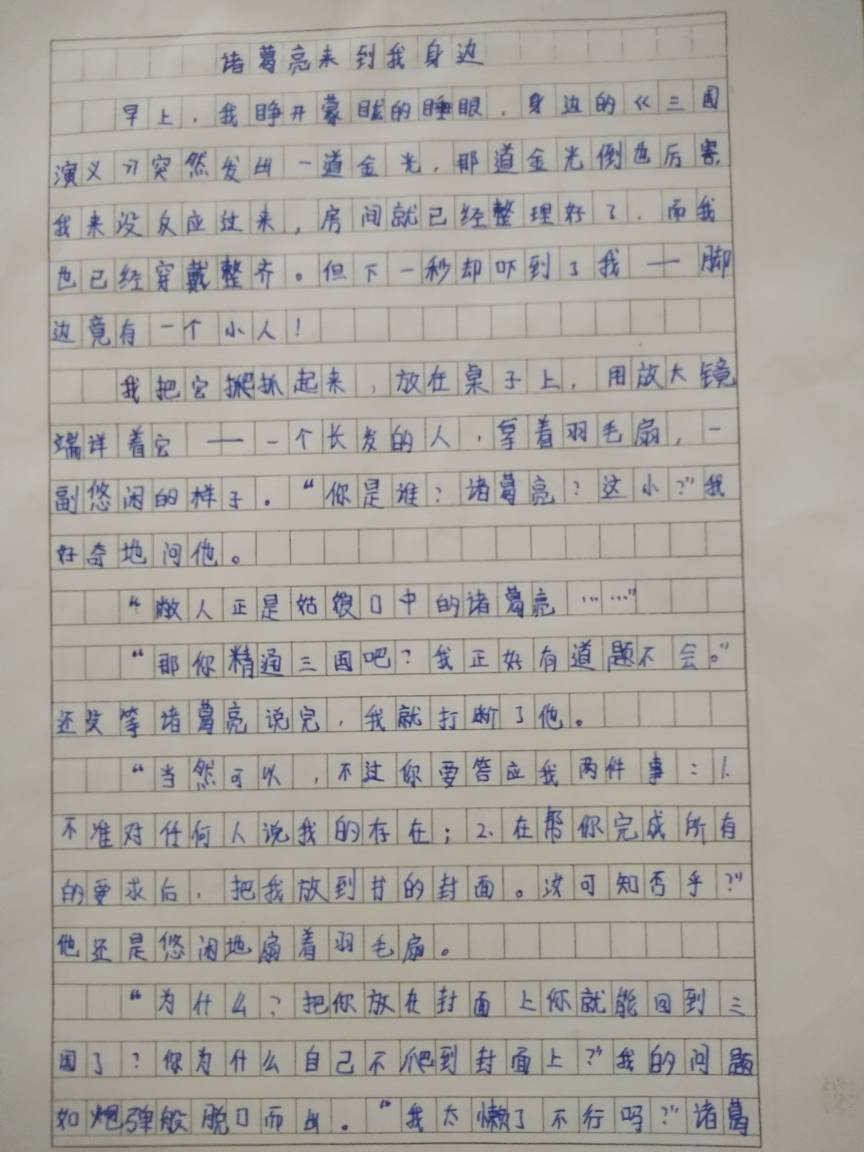 诸葛亮来到我身边
早上，我睁开蒙眬的睡眼，身边的《三国
演义》突然发出一道金光，那道金光倒也厉害
我来没反应过来，房间就已经整理好了，而我
也已经穿戴整齐。但下一秒却吓到了我——脚
边竟有一个小人！
我把它抓起来，放在桌子上，用放大镜
端详着它——一个长发的人，拿着羽毛扇，一
副悠闲的样子。“你是谁？诸葛亮？这小？”我
好奇地问他。
“敝人正是姑娘口中的诸葛亮……”
“那你精通三国吧？我正好有道题不会。”
还没等诸葛亮说完，我就打断了他。
“当然可以，不过你要答应我两件事：1.
不准对任何人说我的存在；2.在帮你完成所有
的要求后，把我放到书的封面。汝可知否乎？”
他还是悠闲地扇着羽毛扇。
“为什么？把你放在封面上你就能回到三
国了？你为什么自己不爬到封面上？”我的问题
如炮弹般脱口而出。“我太懒了不行吗？”诸葛